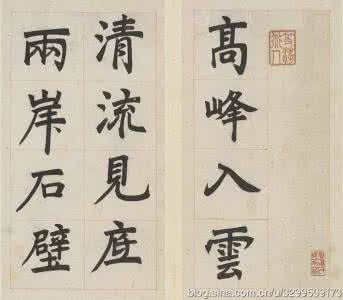 高峰入雲
清流見底
兩岸石壁
blog.sina.com.cn/u/3299509173